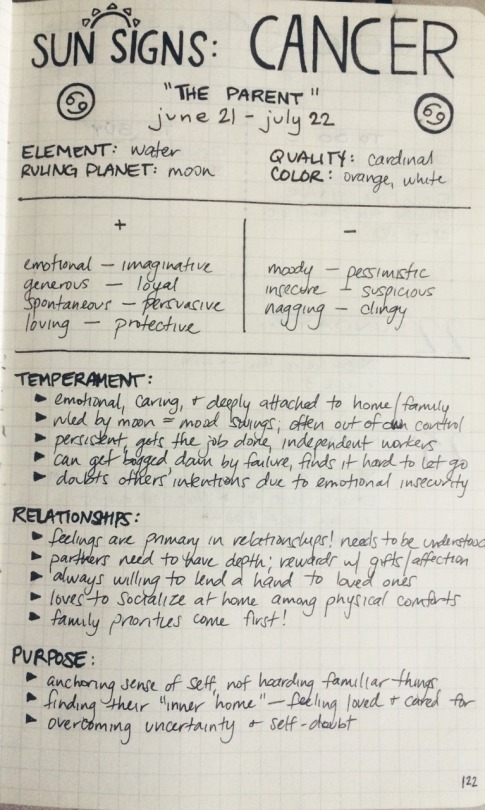 SUN SIGNS: CANCER
"THE PARENT"
june 21 - july 22
ELEMENT: water
QUALITY: cardinal
RULING PLANET: moon
COLOR: orange, white
+
-
emotional — imaginative
generous — loyal
spontaneous — persuasive
loving — protective
moody — pessimistic
insecure — suspicious
nagging — clingy
TEMPERAMENT:
► emotional, caring, + deeply attached to home/family
► ruled by moon = mood swings; often out of control
► persistent, gets the job done, independent workers
► can get bogged down by failure, finds it hard to let go
► doubts others' intentions due to emotional insecurity
RELATIONSHIPS:
► feelings are primary in relationships! needs to be understood
► partners need to have depth; rewards w/ gifts/affection
► always willing to lend a hand to loved ones
► loves to socialize at home among physical comforts
► family priorities come first!
PURPOSE:
► anchoring sense of self, not hoarding familiar things
► finding their "inner home" — feeling loved + cared for
► overcoming uncertainty + self-doubt
122